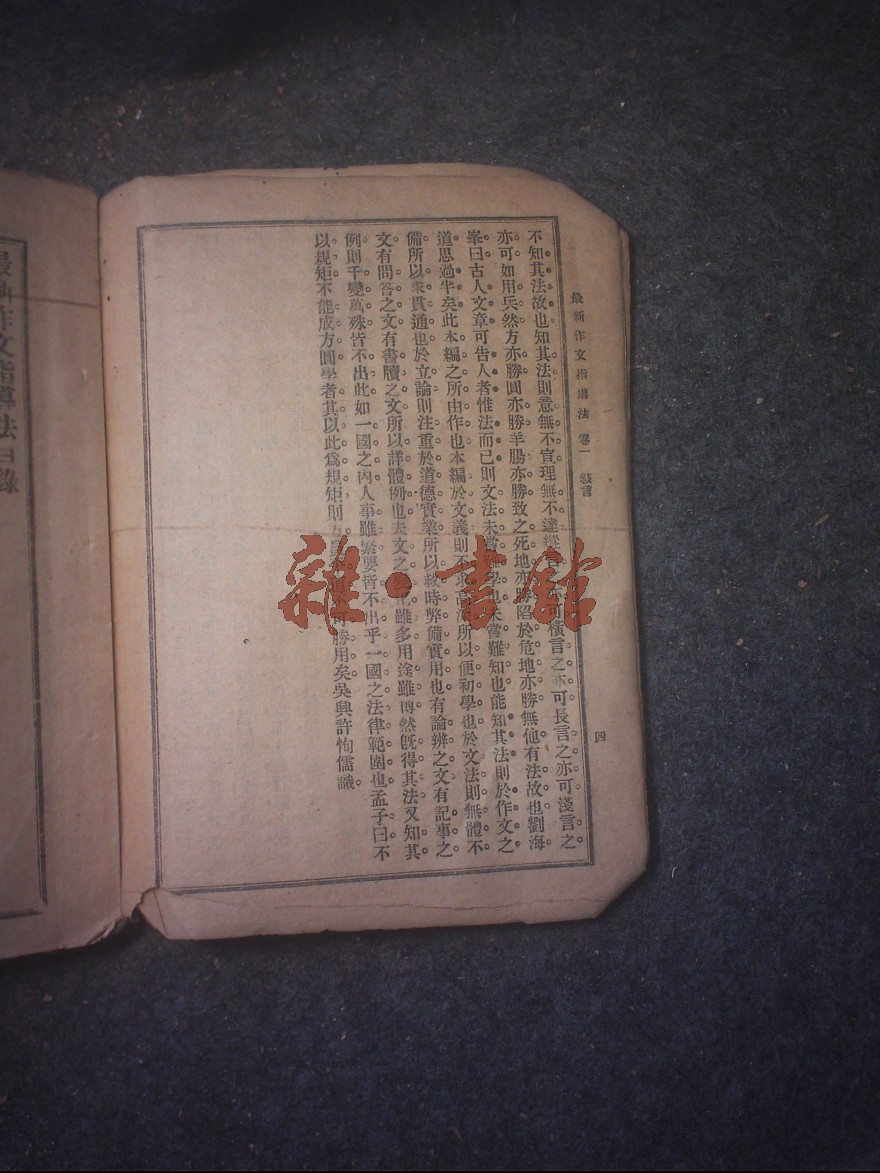 最新作文指導法 卷一 緒言
四
不知其法故也知其法則意無不宣理無不達縱言之亦可橫言之亦可長言之亦可淺言之
亦可如用兵然方亦勝圓亦勝羊腸亦勝致之死地亦勝陷於危地亦勝無他有法故也劉海
峯曰古人文章可告人者惟法而已則文法未嘗難學也未嘗難知也能知其法則於作文之
道思過半矣此本編之所由作也本編於文義則不求高深所以便初學也於文法則無體不
備所以求貫通也於立論則注重於道德實業所以救時弊備實用也有論辨之文有記事之
文有問答之文有書牘之文所以詳體例也夫文之 雖多用途雖博然旣得其法又知其
例則千變萬殊皆不出此如一國之內人事雖繁要皆不出乎一國之法律範圍也孟子曰不
以規矩不能成方圓學者其以此爲規矩則 可勝用矣吳興許恂儒識
最新作文指導法目錄
雜·書館